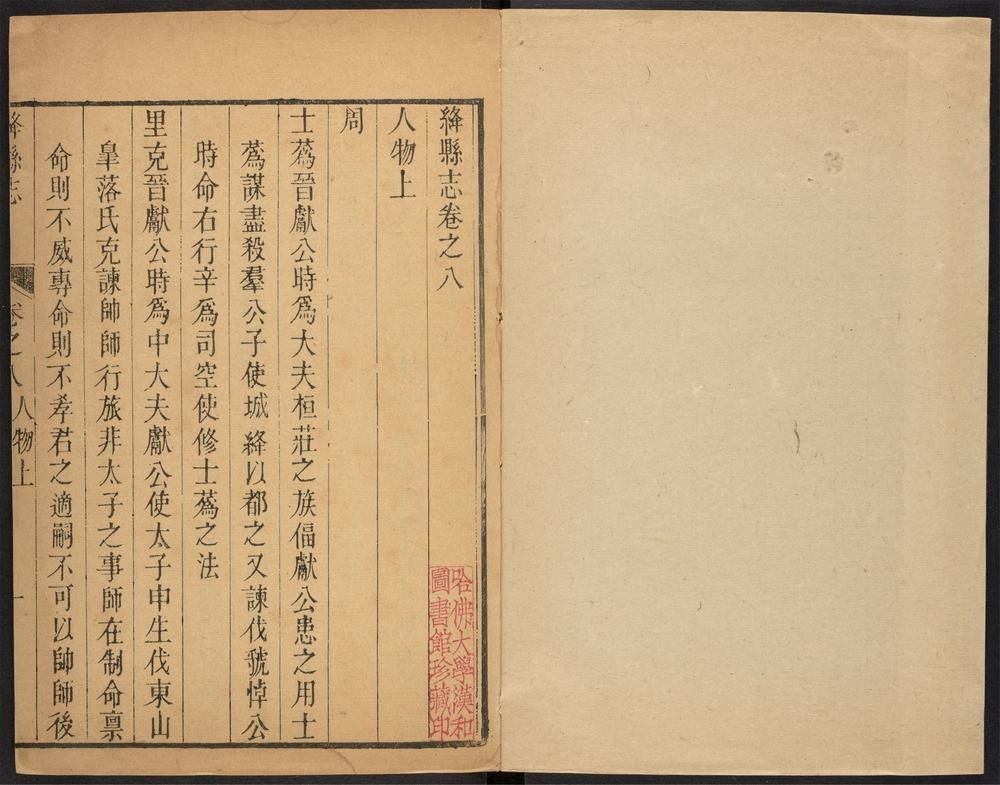 絳縣志卷之八
人物上
周
士蔿晉獻公時爲大夫桓莊之族偪獻公患之用士
蔿謀盡殺羣公子使城絳以都之又諫伐虢悼公
時命右行辛爲司空使修士蔿之法
里克晉獻公時爲中大夫獻公使太子申生伐東山
臯落氏克諫帥師行旅非太子之事師在制命稟
命則不威專命則不孝君之適嗣不可以帥師後
絳縣志 卷之八 人物上 一
哈佛大學漢和
圖書館珍藏印